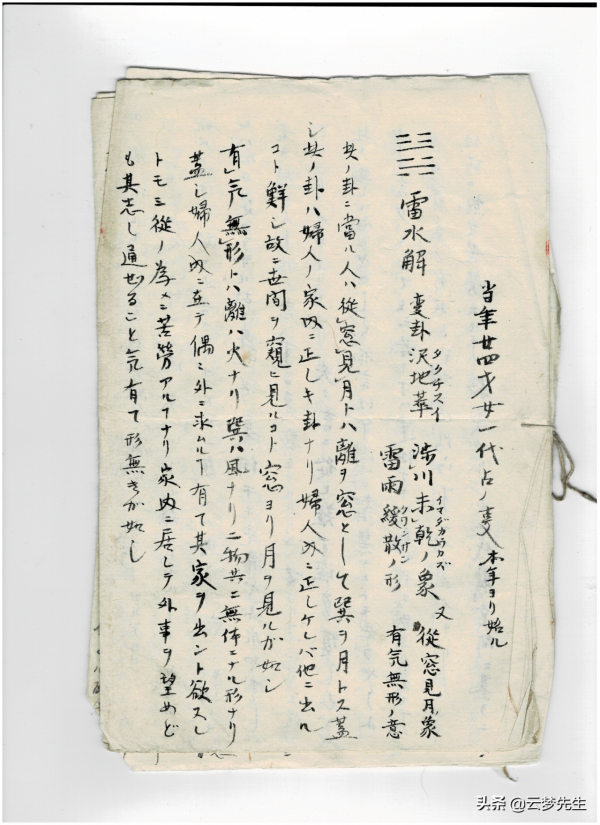 当年廿四才女一代占ノ叓 本年ヨリ始ル
雷水解 変卦沢地萃 渉川未乾ノ象 又 從窓見月象
タクチスイ イマダカワカズ
雷雨緩散ノ形 有気無形ノ意
クワンサン
此ノ卦ニ當ル人ハ從窓見月トハ離ヲ窓として巽ヲ月トス蓋
シ此ノ卦ハ婦人ノ家内ニ正シキ卦ナリ婦人内ニ正シケレバ他ニ出ル
コト鮮シ故ニ世間ヲ窺ヒ見ルコト窓ヨリ月ヲ見ルが如シ
有気無形トハ離ハ火ナリ巽ハ風ナリ二物共ニ無体ニナル形ナリ
蓋シ婦人内ニ在テ偶ニ外ニ求ムルヿ有て其家ヲ出ント欲スレ
トモ從ノ為メニ苦勞アルヿナリ家内ニ居して外事ヲ望めど
も其志し通ぜること気有て形無きが如し
头条@云梦先生